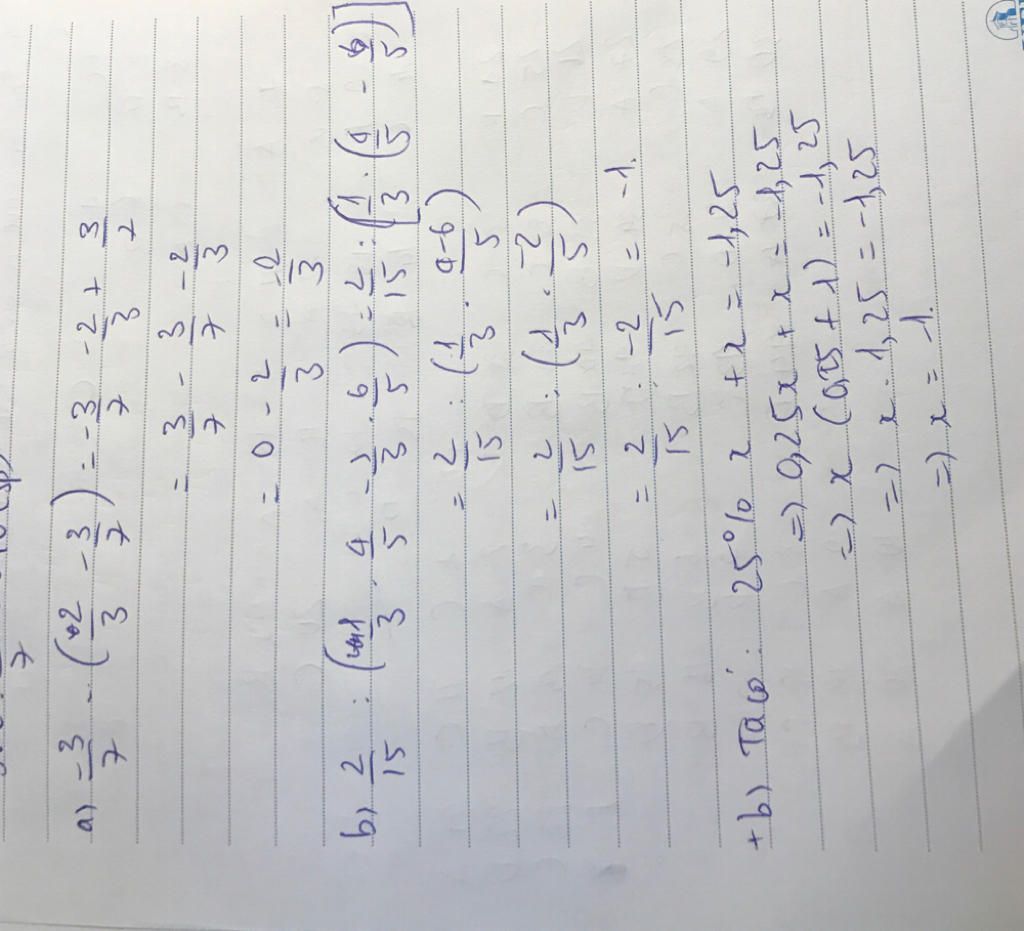 7
a) -3/7 - (2/3 - 3/7) = -3/7 - 2/3 + 3/7
= 3/7 - 3/7 - 2/3
= 0 - 2/3 = -2/3
b) 2/15 : (1/3 . 4/5 - 1/3 . 6/5) = 2/15 : [1/3 . (4/5 - 6/5)]
= 2/15 : (1/3 . 4-6/5)
= 2/15 : (1/3 . -2/5)
= 2/15 : -2/15 = -1.
+b) Ta có: 25% x + x = -1,25
=) 0,25x + x = -1,25
=) x (0,25 + 1) = -1,25
=) x . 1,25 = -1,25
=) x = -1.